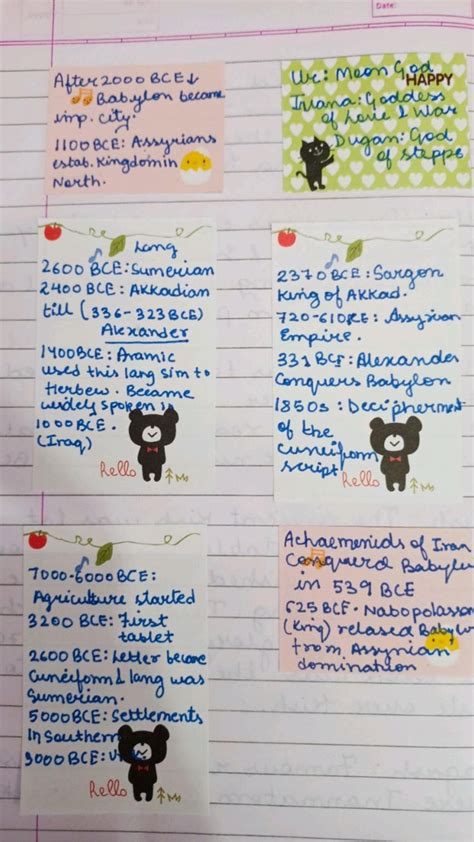 Date:
After 2000 BCE↓
Babylon became
imp. city.
1100 BCE: Assyrians
estab. Kingdom in
North.
Ur: Moon God
HAPPY
Inana: Goddess
of Love & War
Dugan: God
of steppe
Lang
2600 BCE: Sumerian
2400 BCE: Akkadian
till (336-323 BCE)
Alexander
1400 BCE: Aramic
used this lang sim to
Herbew. Became
widely spoken in
1000 BCE.
(Iraq)
Hello
2370 BCE: Sargon
King of AKKad.
720-610 BCE: Assyrian
Empire.
331 BCE: Alexander
Conquers Babylon
1850s: Decipherment
of the
cuneiform
script
Hello
7000-6000 BCE:
Agriculture started
3200 BCE: First
tablet
2600 BCE: Letter became
Cuneiform & lang was
Sumerian.
5000 BCE: Settlements
in Southern
3000 BCE:
Hello
Achaemenids of Iran
Conquerd Babylon
in 539 BCE
625 BCE. Nabopolassar
(King) relased Babylon
from Assyrian
domination